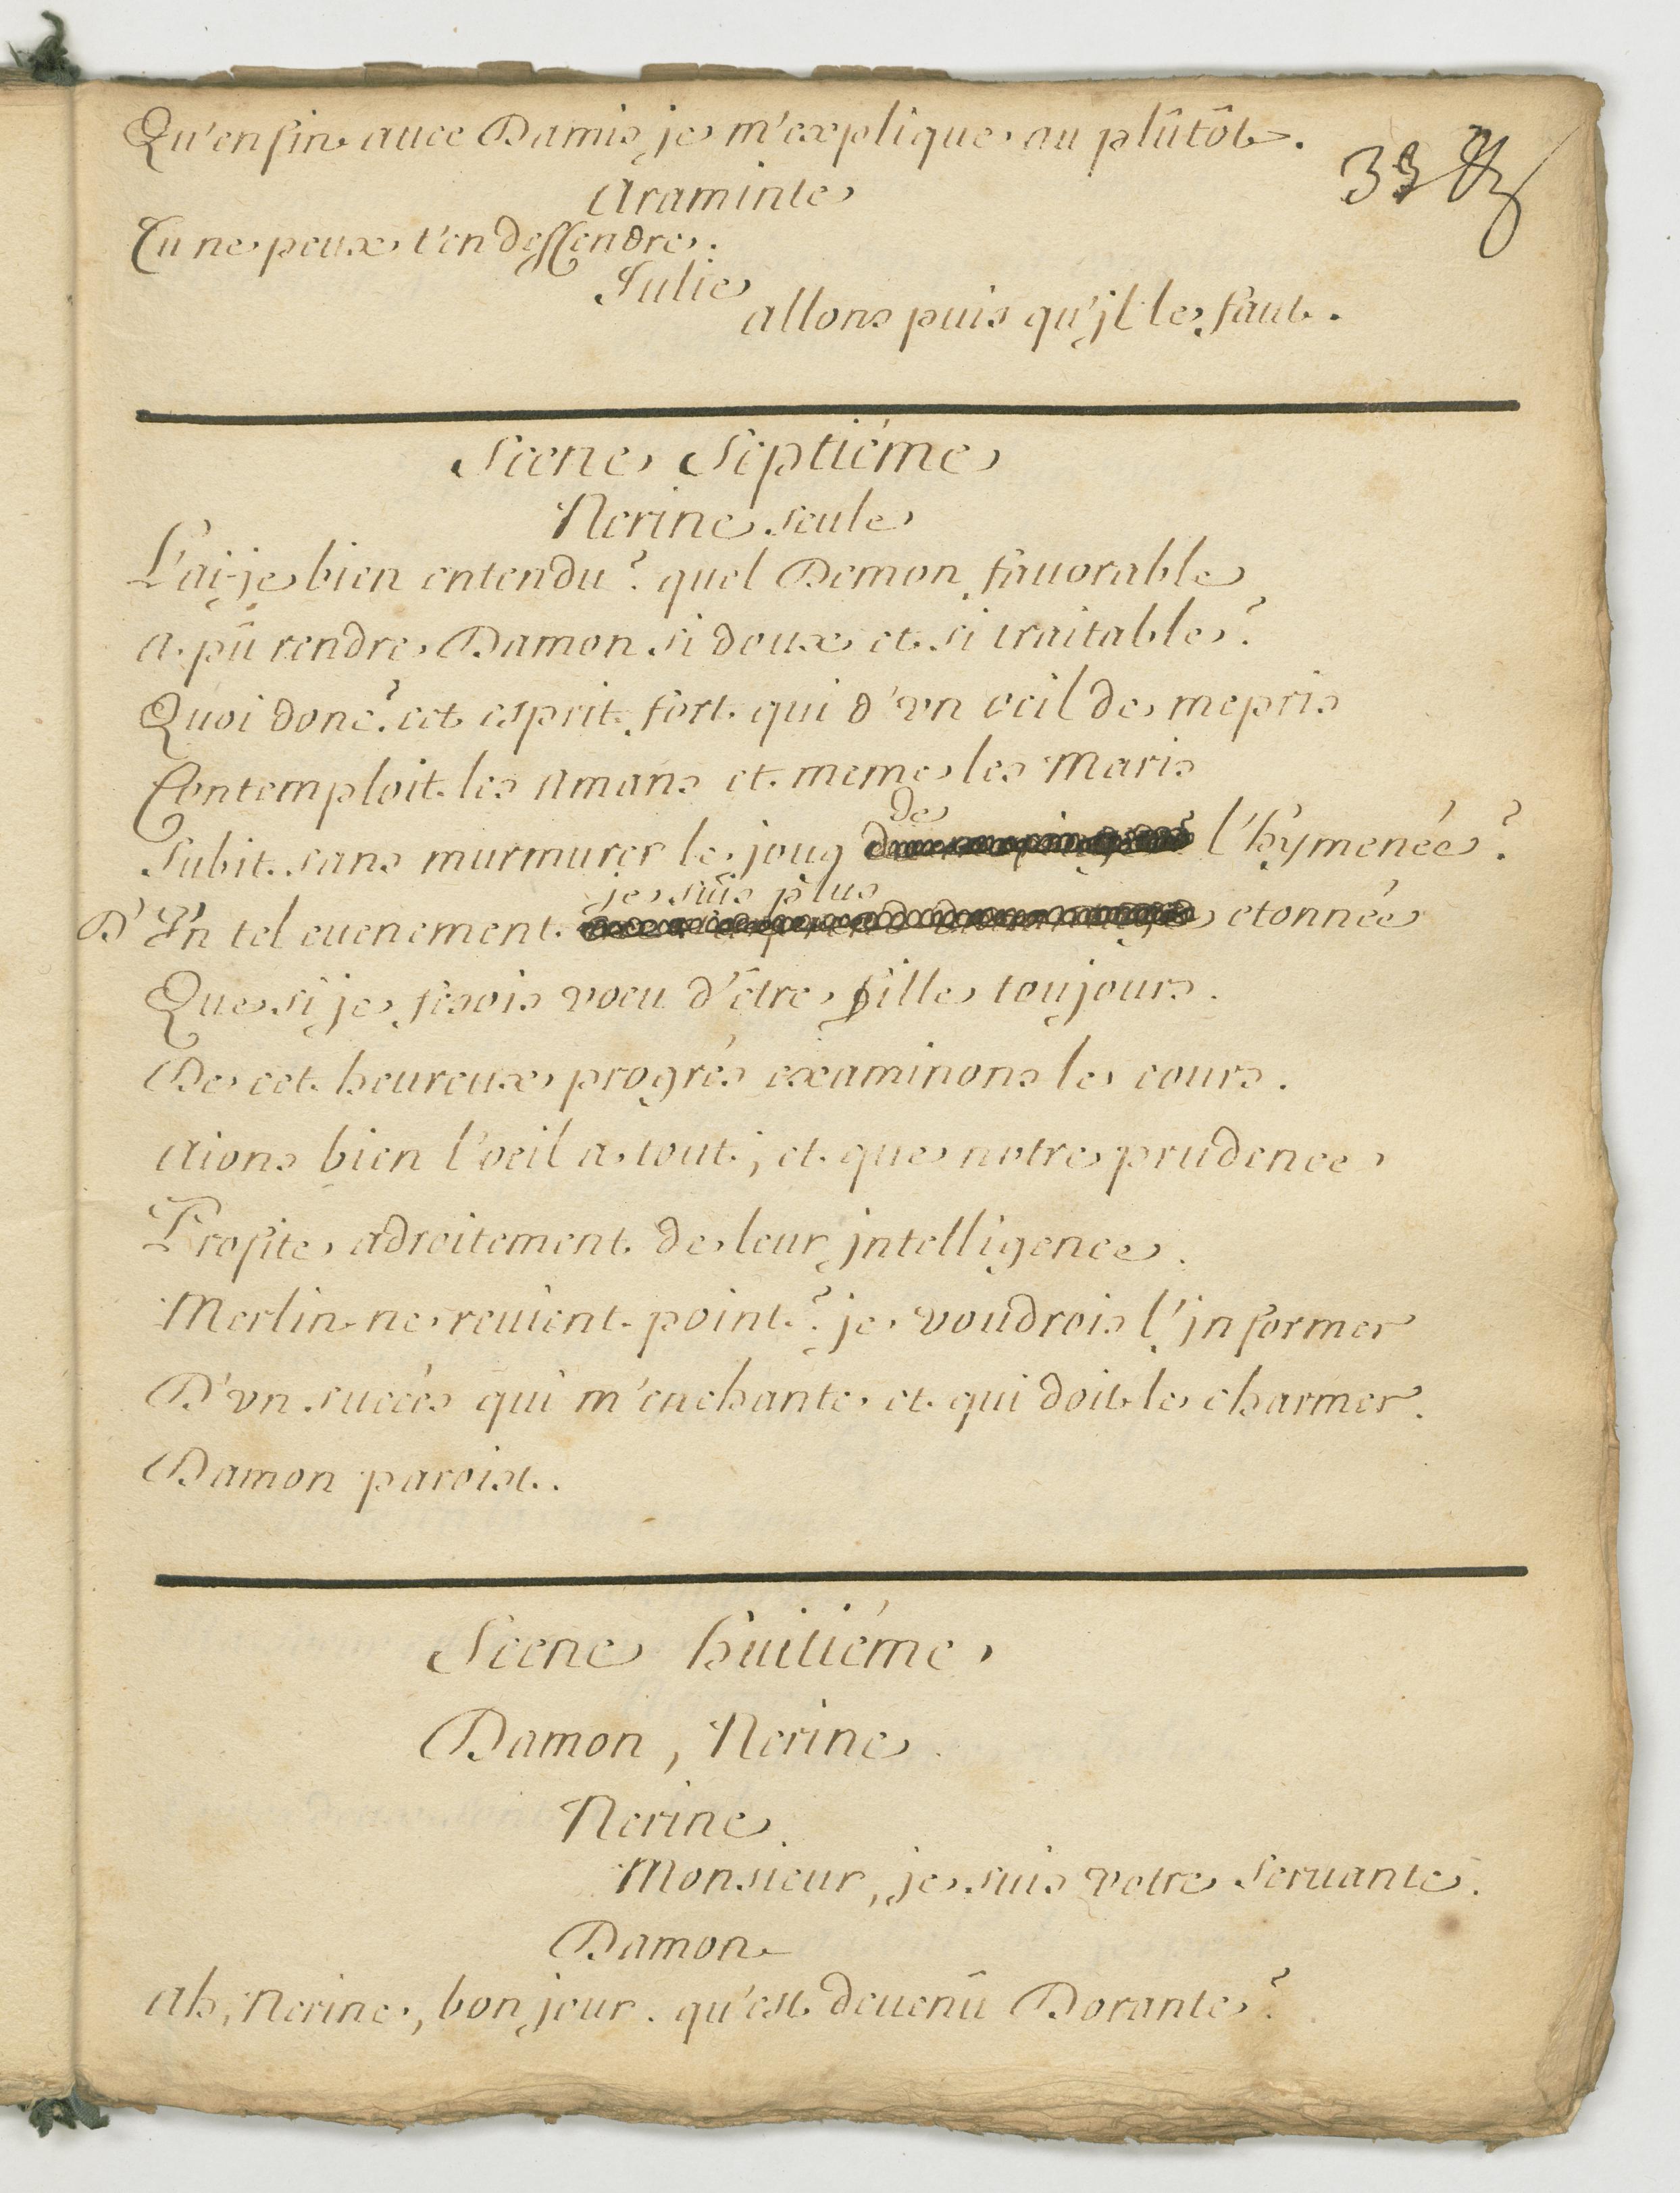 Qu'enfin auec Damis je m'explique au plûtôt.
33
Araminte
Tu ne peux t'en deffendre.
Julie
allons puis qu'jl le faut.
Scene Septiéme
Nerine seule
L'ai-je bien entendu? quel Demon fauorable
a pû rendre Damon si doux et si traitable?
Quoi donc? cet esprit fort qui d'vn oeil de mepris
Contemploit les amans et meme les Maris
de
Subit sans murmurer le joug l'hymenée?
je suis plus
D'Vn tel euenement etonnée
Que si je fesois voeu d'être fille toujours.
De cet heureux progrés examinons le cours.
aions bien l'oeil a tout; et que notre prudence
Profite adroitement de leur jntelligence.
Merlin ne reuient point? je voudrois l'jnformer
D'vn succés qui m'enchante et qui doit le charmer.
Damon paroist.
Scene huitiéme
Damon, Nerine.
Nerine.
Monsieur, je suis votre seruante.
Damon
ah, Nerine, bon jour. qu'est deuenû Dorante?